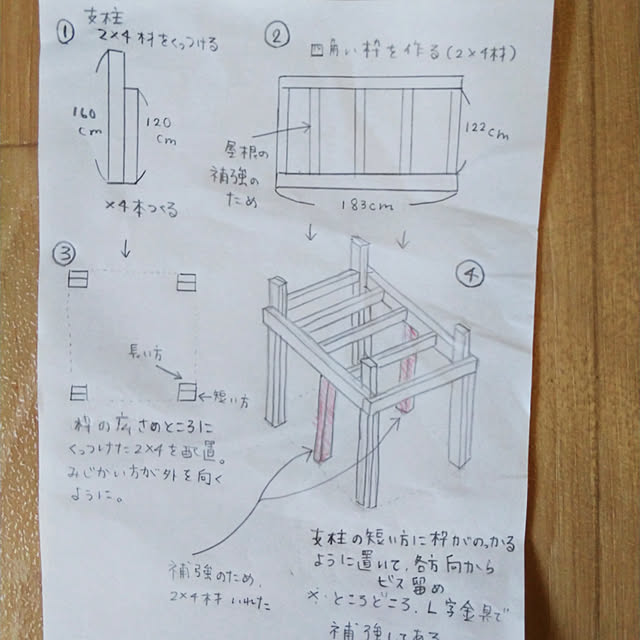 ①
支柱
2×4材をくっつける
160cm
120cm
×4本つくる
②
四角い枠を作る(2×4材)
屋根の
補強の
ため
122cm
183cm
③
長い方
←短い方
枠の広さのところに
くっつけた2×4を配置。
みじかい方が外を向く
ように。
④
補強のため、
2×4材いれた
支柱の短い方に枠がのっかる
ように置いて、各方向から
ビス留め
※ところどころ、L字金具で
補強してある